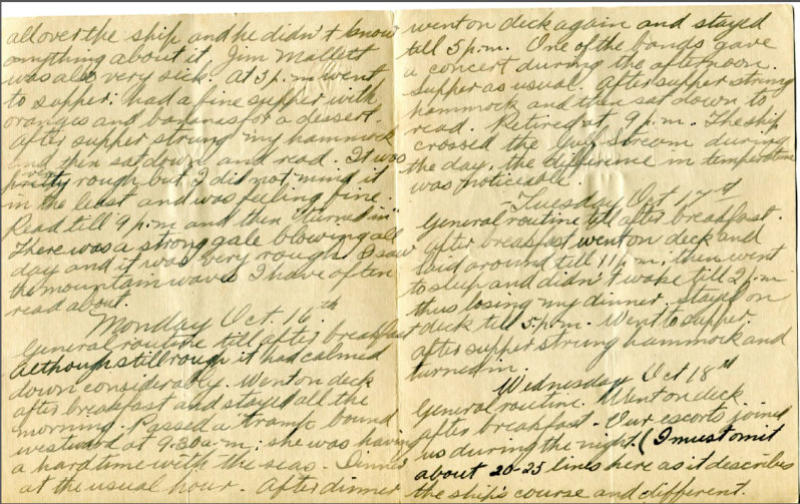 all over the ship and he didn't know
anything about it. Jim Mallett
was also very sick. At 5 p.m. went
to supper; had a fine supper with
oranges and bananas for a dessert.
After supper strung my hammock
and then sat down and read. It was
pretty rough but I did not mind it
in the least and was feeling fine.
Read till 9 p.m and then "turned in"
There was a strong gale blowing all
day and it was very rough. I saw
the mountain waves I have often
read about.
Monday Oct. 16.th
General routine till after breakfast
Although still rough it had calmed
down considerably. Went on deck
after breakfast and stayed all the
morning. Passed a "tramp" bound
westward at 9:30 a-m; she was having
a hard time with the seas. Dinner
at the usual hour. After dinner
went on deck again and stayed
till 5 p.m. One of the bands gave
a concert during the afternoon.
Supper as usual. After supper strung
hammock and then sat down to
read. Retired at 9 p.m. The ship
crossed the Gulf Stream during
the day, the difference in temperature
was noticeable.
Tuesday Oct 17th
General routine till after breakfast.
After breakfast went on deck and
laid around till 11 p.m; then went
to sleep and didn't wake till 2 p.m.
thus losing my dinner. Stayed on
deck till 5 p.m. Went to supper.
After supper strung hammock and
turned in.
Wednesday Oct 18th
General routine. Went on deck
after breakfast. Our escorts joined
us during the night. (I must omit
about 20-25 lines here as it describes
the ship's course and different.